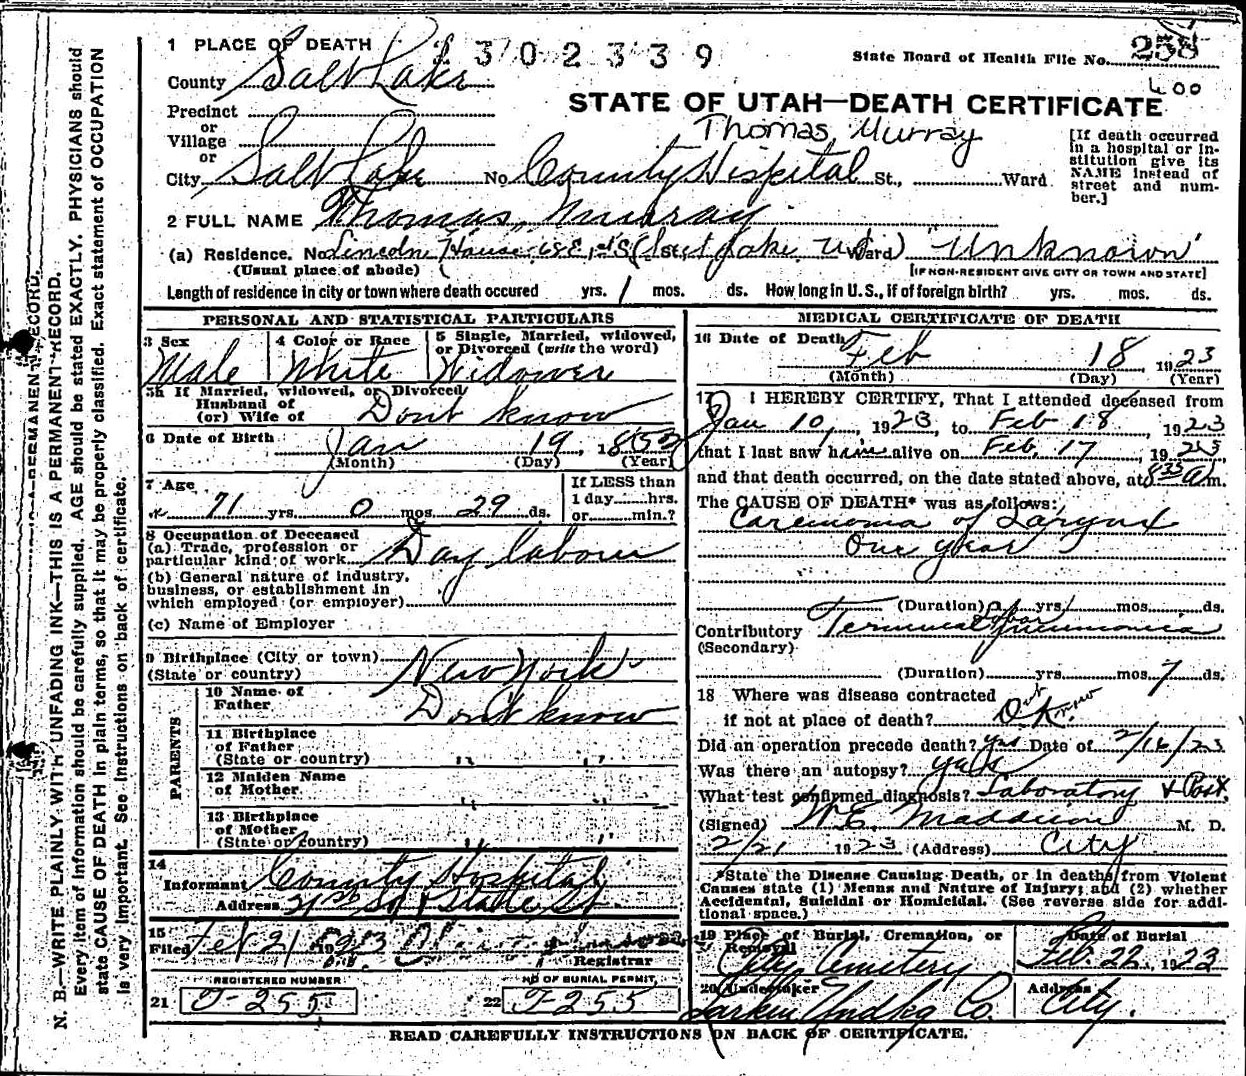 1 PLACE OF DEATH 1302339
State Board of Health File No. 258
County Salt Lake
400
STATE OF UTAH—DEATH CERTIFICATE
Precinct
or
Village
or
Thomas Murray
City Salt Lake No County Hospital St., Ward
[If death occurred in a hospital or institution give its NAME instead of street and number.]
2 FULL NAME Thomas Murray.
(a) Residence. No Lincoln House 68 E 1st S (Salt Lake Ut Ward) "Unknown"
(Usual place of abode)
[IF NON-RESIDENT GIVE CITY OR TOWN AND STATE]
Length of residence in city or town where death occured yrs. 1 mos. ds. How long in U.S., if of foreign birth? yrs. mos. ds.
PERSONAL AND STATISTICAL PARTICULARS
3 Sex Male
4 Color or Race White
5 Single, Married, widowed, or Divorced (write the word) Widower
5a If Married, widowed, or Divorced
Husband of
(or) Wife of Dont know
6 Date of Birth Jan 19, 1852
(Month) (Day) (Year)
7 Age 71 yrs. 0 mos. 29 ds.
If LESS than
1 day hrs.
or min.?
8 Occupation of Deceased
(a) Trade, profession or
particular kind of work Day labour
(b) General nature of industry,
business, or establishment in
which employed (or employer)
(c) Name of Employer
9 Birthplace (City or town)
(State or country) New York
PARENTS
10 Name of
Father Don't know
11 Birthplace
of Father
(State or country) " "
12 Maiden Name
of Mother " "
13 Birthplace
of Mother
(State or country) " "
14
Informant County Hospital
Address 21st So & State St
15
Filed Feb 21 1923
Registrar
REGISTERED NUMBER
21 T-255
NO OF BURIAL PERMIT,
22 T-255
MEDICAL CERTIFICATE OF DEATH
16 Date of Death Feb 18 1923
(Month) (Day) (Year)
17 I HEREBY CERTIFY, That I attended deceased from
Jan 10, 1923, to Feb 18, 1923
that I last saw him alive on Feb. 17 1923
and that death occurred, on the date stated above, at 8 35 a m.
The CAUSE OF DEATH* was as follows:
Carcinoma of Larynx
One year
(Duration) yrs 1 mos. ds.
Contributory Terminal lobar pneumonia
(Secondary)
(Duration) yrs. mos 7 ds.
18 Where was disease contracted
if not at place of death?
Did an operation precede death? yes Date of 2/16/23
Was there an autopsy? yes
What test confirmed diagnosis? Laboratory & Post
(Signed) W.E. Maddison M. D.
2/21 1923 (Address) City
*State the Disease Causing Death, or in deaths from Violent
Causes state (1) Means and Nature of Injury; and (2) whether
Accidental, Suicidal or Homicidal. (See reverse side for additional space.)
19 Place of Burial, Cremation, or
Removal City Cemetery
Date of Burial
Feb. 22, 1923
20 Undertaker
Larkin Undkg Co.
Address
City.
READ CAREFULLY INSTRUCTIONS ON BACK OF CERTIFICATE.
N. B.—WRITE PLAINLY WITH UNFADING INK—THIS IS A PERMANENT RECORD.
Every item of information should be carefully supplied. AGE should be stated EXACTLY. PHYSICIANS should
state CAUSE OF DEATH in plain terms, so that it may be properly classified. Exact statement of OCCUPATION
is very important. See instructions on back of certificate.